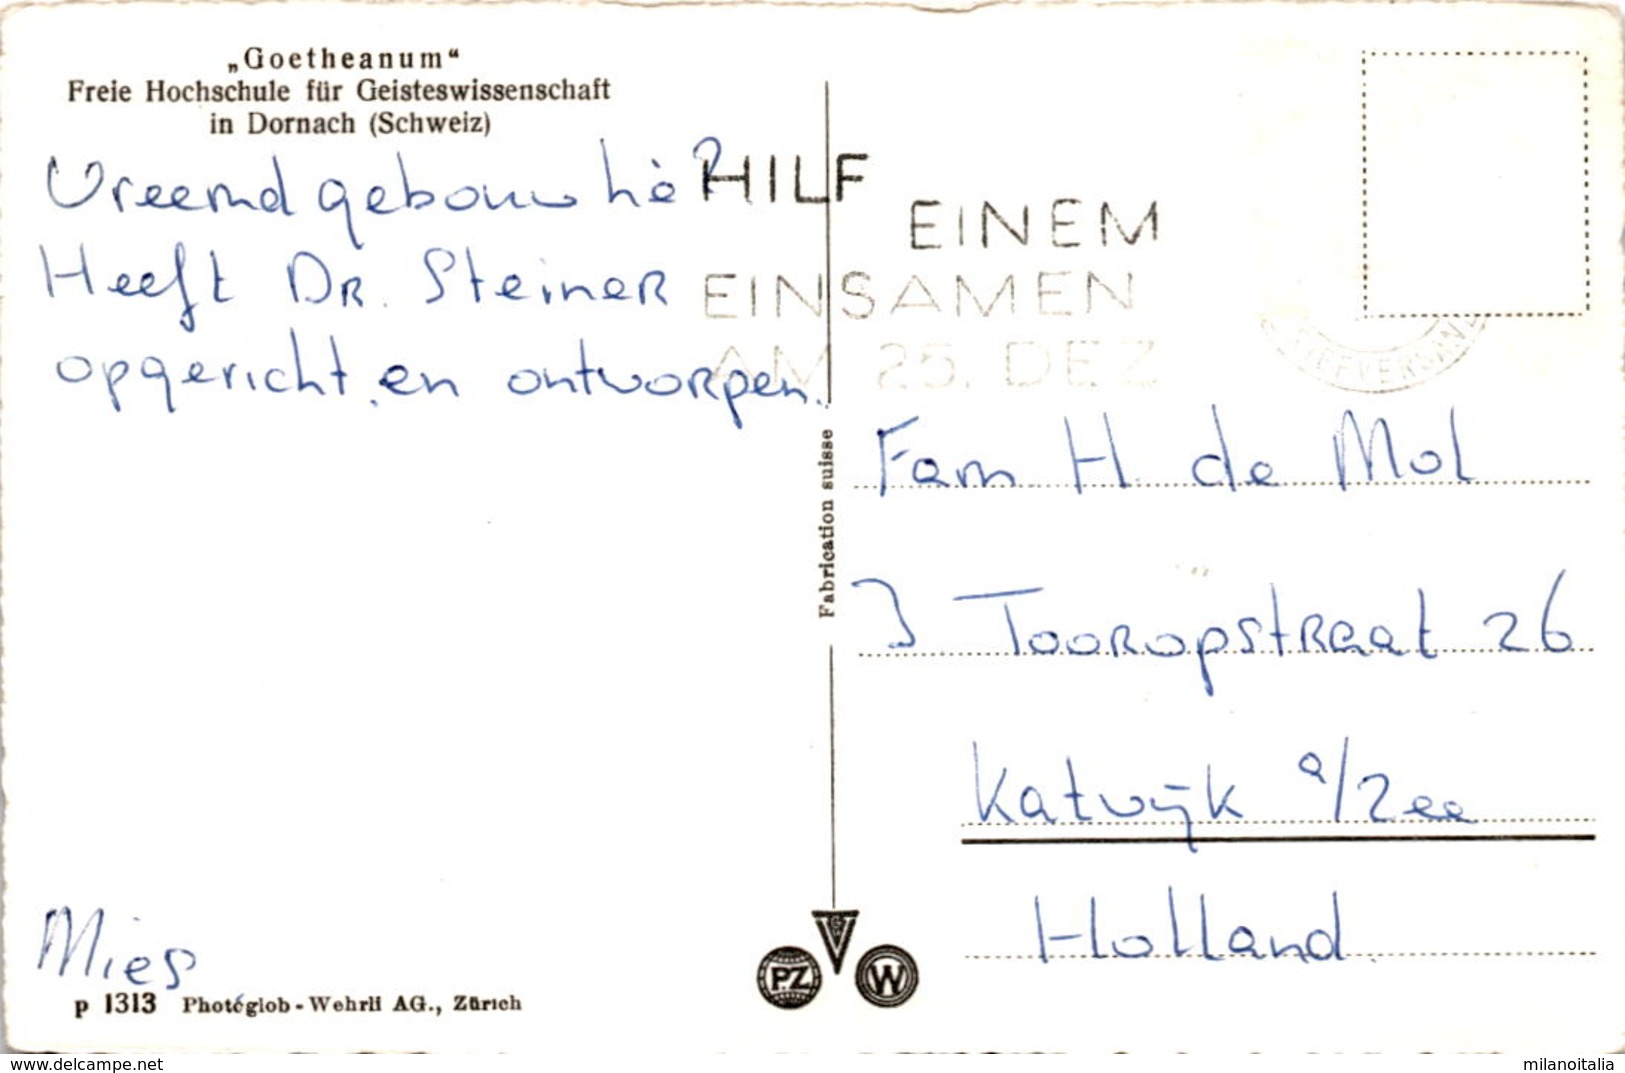 „Goetheanum“
Freie Hochschule für Geisteswissenschaft
in Dornach (Schweiz)
Vreemd gebouw hè?
Heeft DR. Steiner
opgericht en ontworpen.
Mies
p 1313 Photoglob-Wehrli AG., Zürich
HILF
EINEM
EINSAMEN
AM 25. DEZ
BRIEFVERSAND
Fabrication suisse
Fam H de Mol
J Tooropstraat 26
Katwijk a/Zee
Holland.
PZ
V
W
www.delcampe.net
milanoitalia